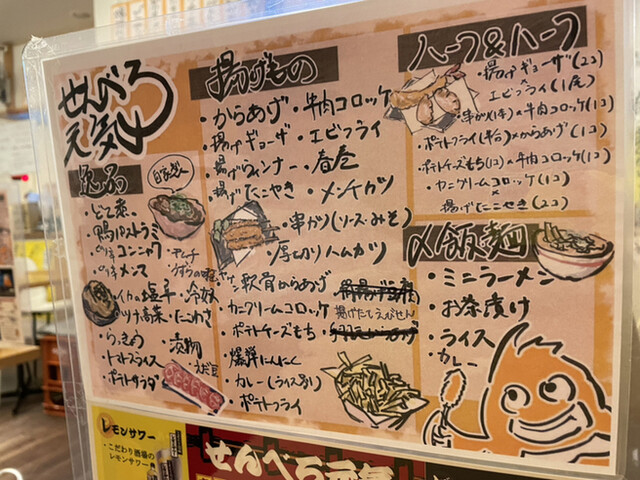 せんべろ
元気
逸品
自家製
どて煮
・鴨パストラミ
コンニャク
メンマ
・キムチ
うずらの
・イカの塩辛・冷奴
・ツナ高菜・たこわさ
・らっきょう
・漬物
・トマトスライス
・えだ豆
・ポテトサラダ
揚げもの
・からあげ・牛肉コロッケ
・揚げギョーザ・エビフライ
・揚げウィンナー・春巻
・揚げたこやき・メンチカツ
・串カツ(ソース・みそ)
・厚切りハムカツ
軟骨からあげ
・カニクリームコロッケ
揚げたてえびせん
・ポテトチーズもち
・爆弾にんにく
・カレー(ライス別)
・ポテトフライ
ハーフ&ハーフ
・揚げギョーザ(2コ)
×
エビフライ(1尾)
・串カツ(1本)×牛肉コロッケ(1コ)
・ポテトフライ(半台)×からあげ(1コ)
・ポテトチーズもち(1コ)×牛肉コロッケ(1コ)
・カニクリームコロッケ(1コ)
×
揚げたこやき(2コ)
〆飯麺
・ミニラーメン
・お茶漬け
・ライス
・カレー
レモンサワー
・こだわり酒場の
レモンサワー
せんべろ元気